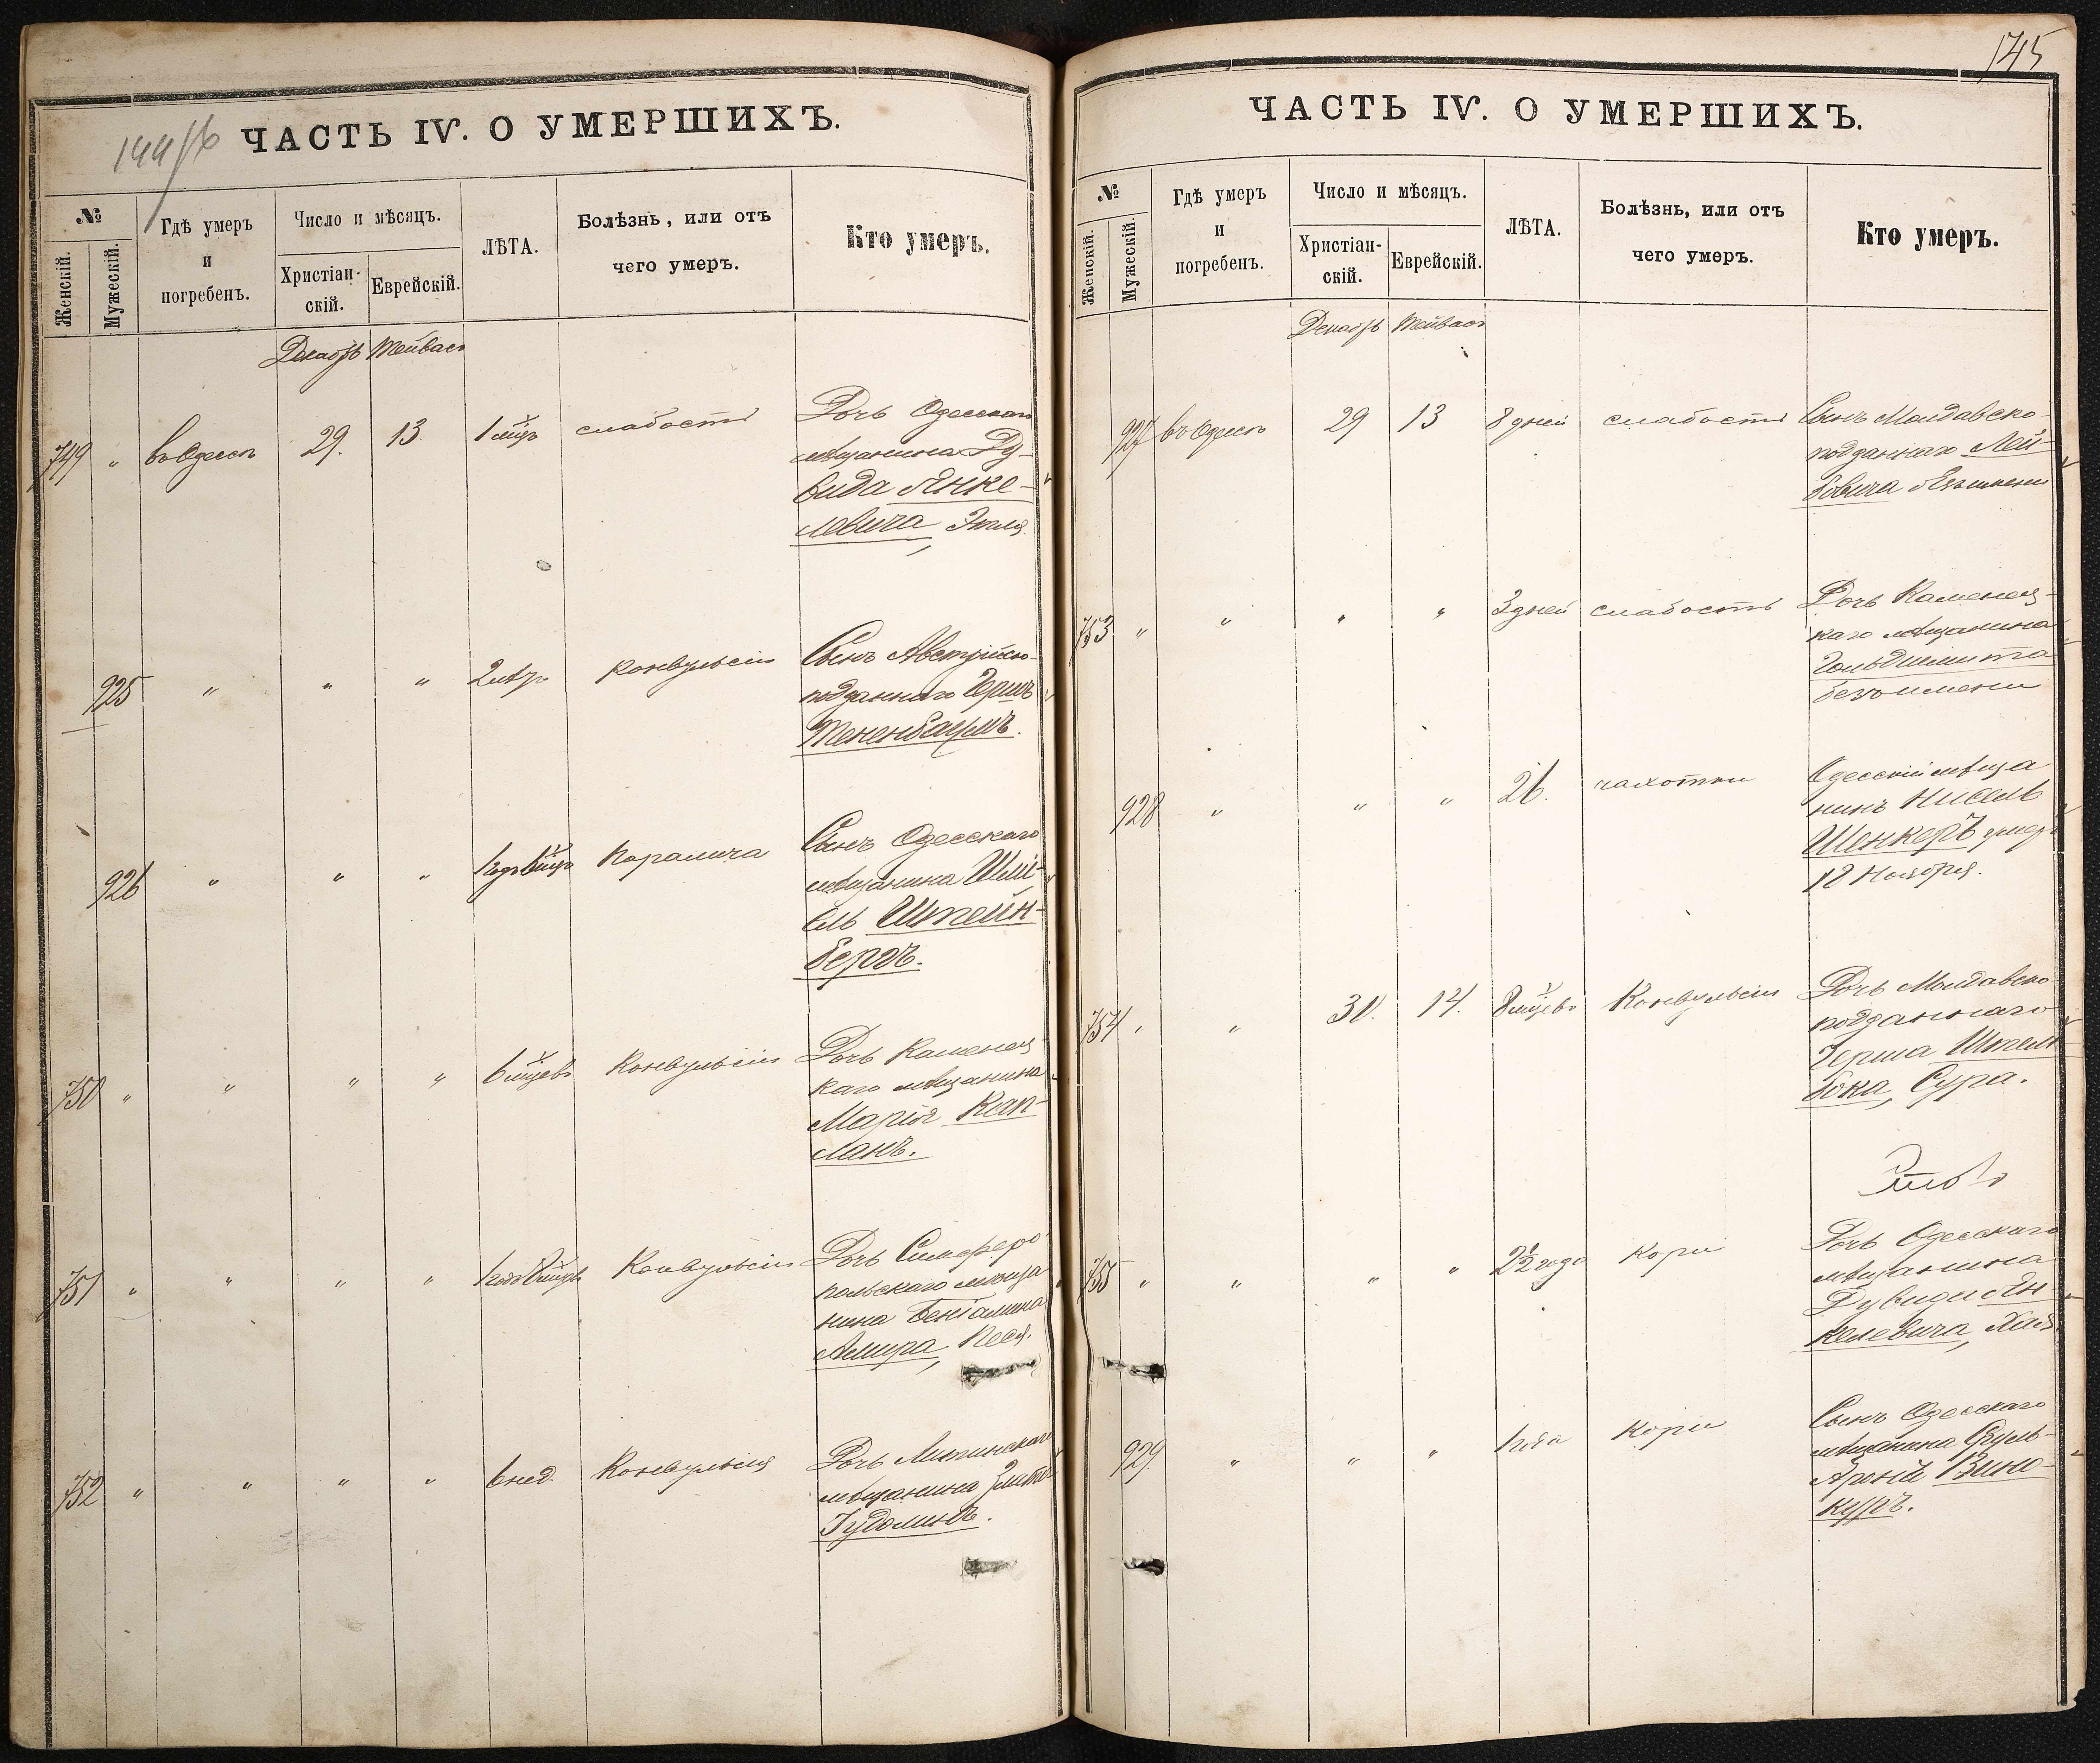 144об
ЧАСТЬ IV. О УМЕРШИХЪ.
№
Женскій. Мужескій.
Гдѣ умеръ
и
погребенъ.
Число и мѣсяцъ.
Христіан-
скій.
Еврейскій.
ЛѢТА.
Болѣзнь, или отъ
чего умеръ.
Кто умеръ.
Декабрь Тейвасъ
749 " въ Одессѣ 29. 13. 1 мцъ слабости Дочь Одесскаго
мѣщанина Ду-
вида Янке-
левича, Этля
925 " " " 2 лѣтъ Конвульсіи Сынъ Австрійско-
подданнаго Гершъ
Тененбаумъ.
926 " " " 1 годъ 6 мцъ Паралича Сынъ Одесскаго
мѣщанина Шмі-
ель Штейн-
бергъ.
750 " " " " 6 мцевъ Конвульсіи Дочь Каменец-
каго мѣщанина
Марія Кап-
ланъ.
751 " " " " 1 годъ 8 мцевъ Конвульсіи Дочь Симферо-
польскаго мѣща
нина Беніамина
Амира, Песя.
752 " " " " 6 нед. Конвульсія Дочь Литинскаго
мѣщанина Злата
Гудоминъ.
145
ЧАСТЬ IV. О УМЕРШИХЪ.
№
Женскій. Мужескій.
Гдѣ умеръ
и
погребенъ.
Число и мѣсяцъ.
Христіан-
скій.
Еврейскій.
ЛѢТА.
Болѣзнь, или отъ
чего умеръ.
Кто умеръ.
Декабрь Тейвасъ
927 въ Одессѣ 29 13 8 дней слабости Сынъ Молдавско-
подданнаго Лей-
бовича безъ имени
753 " " " " 3 дней слабости Дочь Каменец-
каго мѣщанина
Гольдшмита
безъ имени
928 " " " 26. чахотки Одесскій мѣща
нинъ Нисель
Шенкеръ умеръ
18 Ноября.
754 " " 30. 14. 8 мцевъ Конвульсіи Дочь Молдавско
подданнаго
Герша Штель
бока, Сура.
755 " " " " 2½ года Кори Дочь Одесскаго
мѣщанина
Дувида Ян-
келевича, Хая
929 " " " 1 года Кори Сынъ Одесскаго
мѣщанина Сруль-
Аронъ Вино-
куръ.